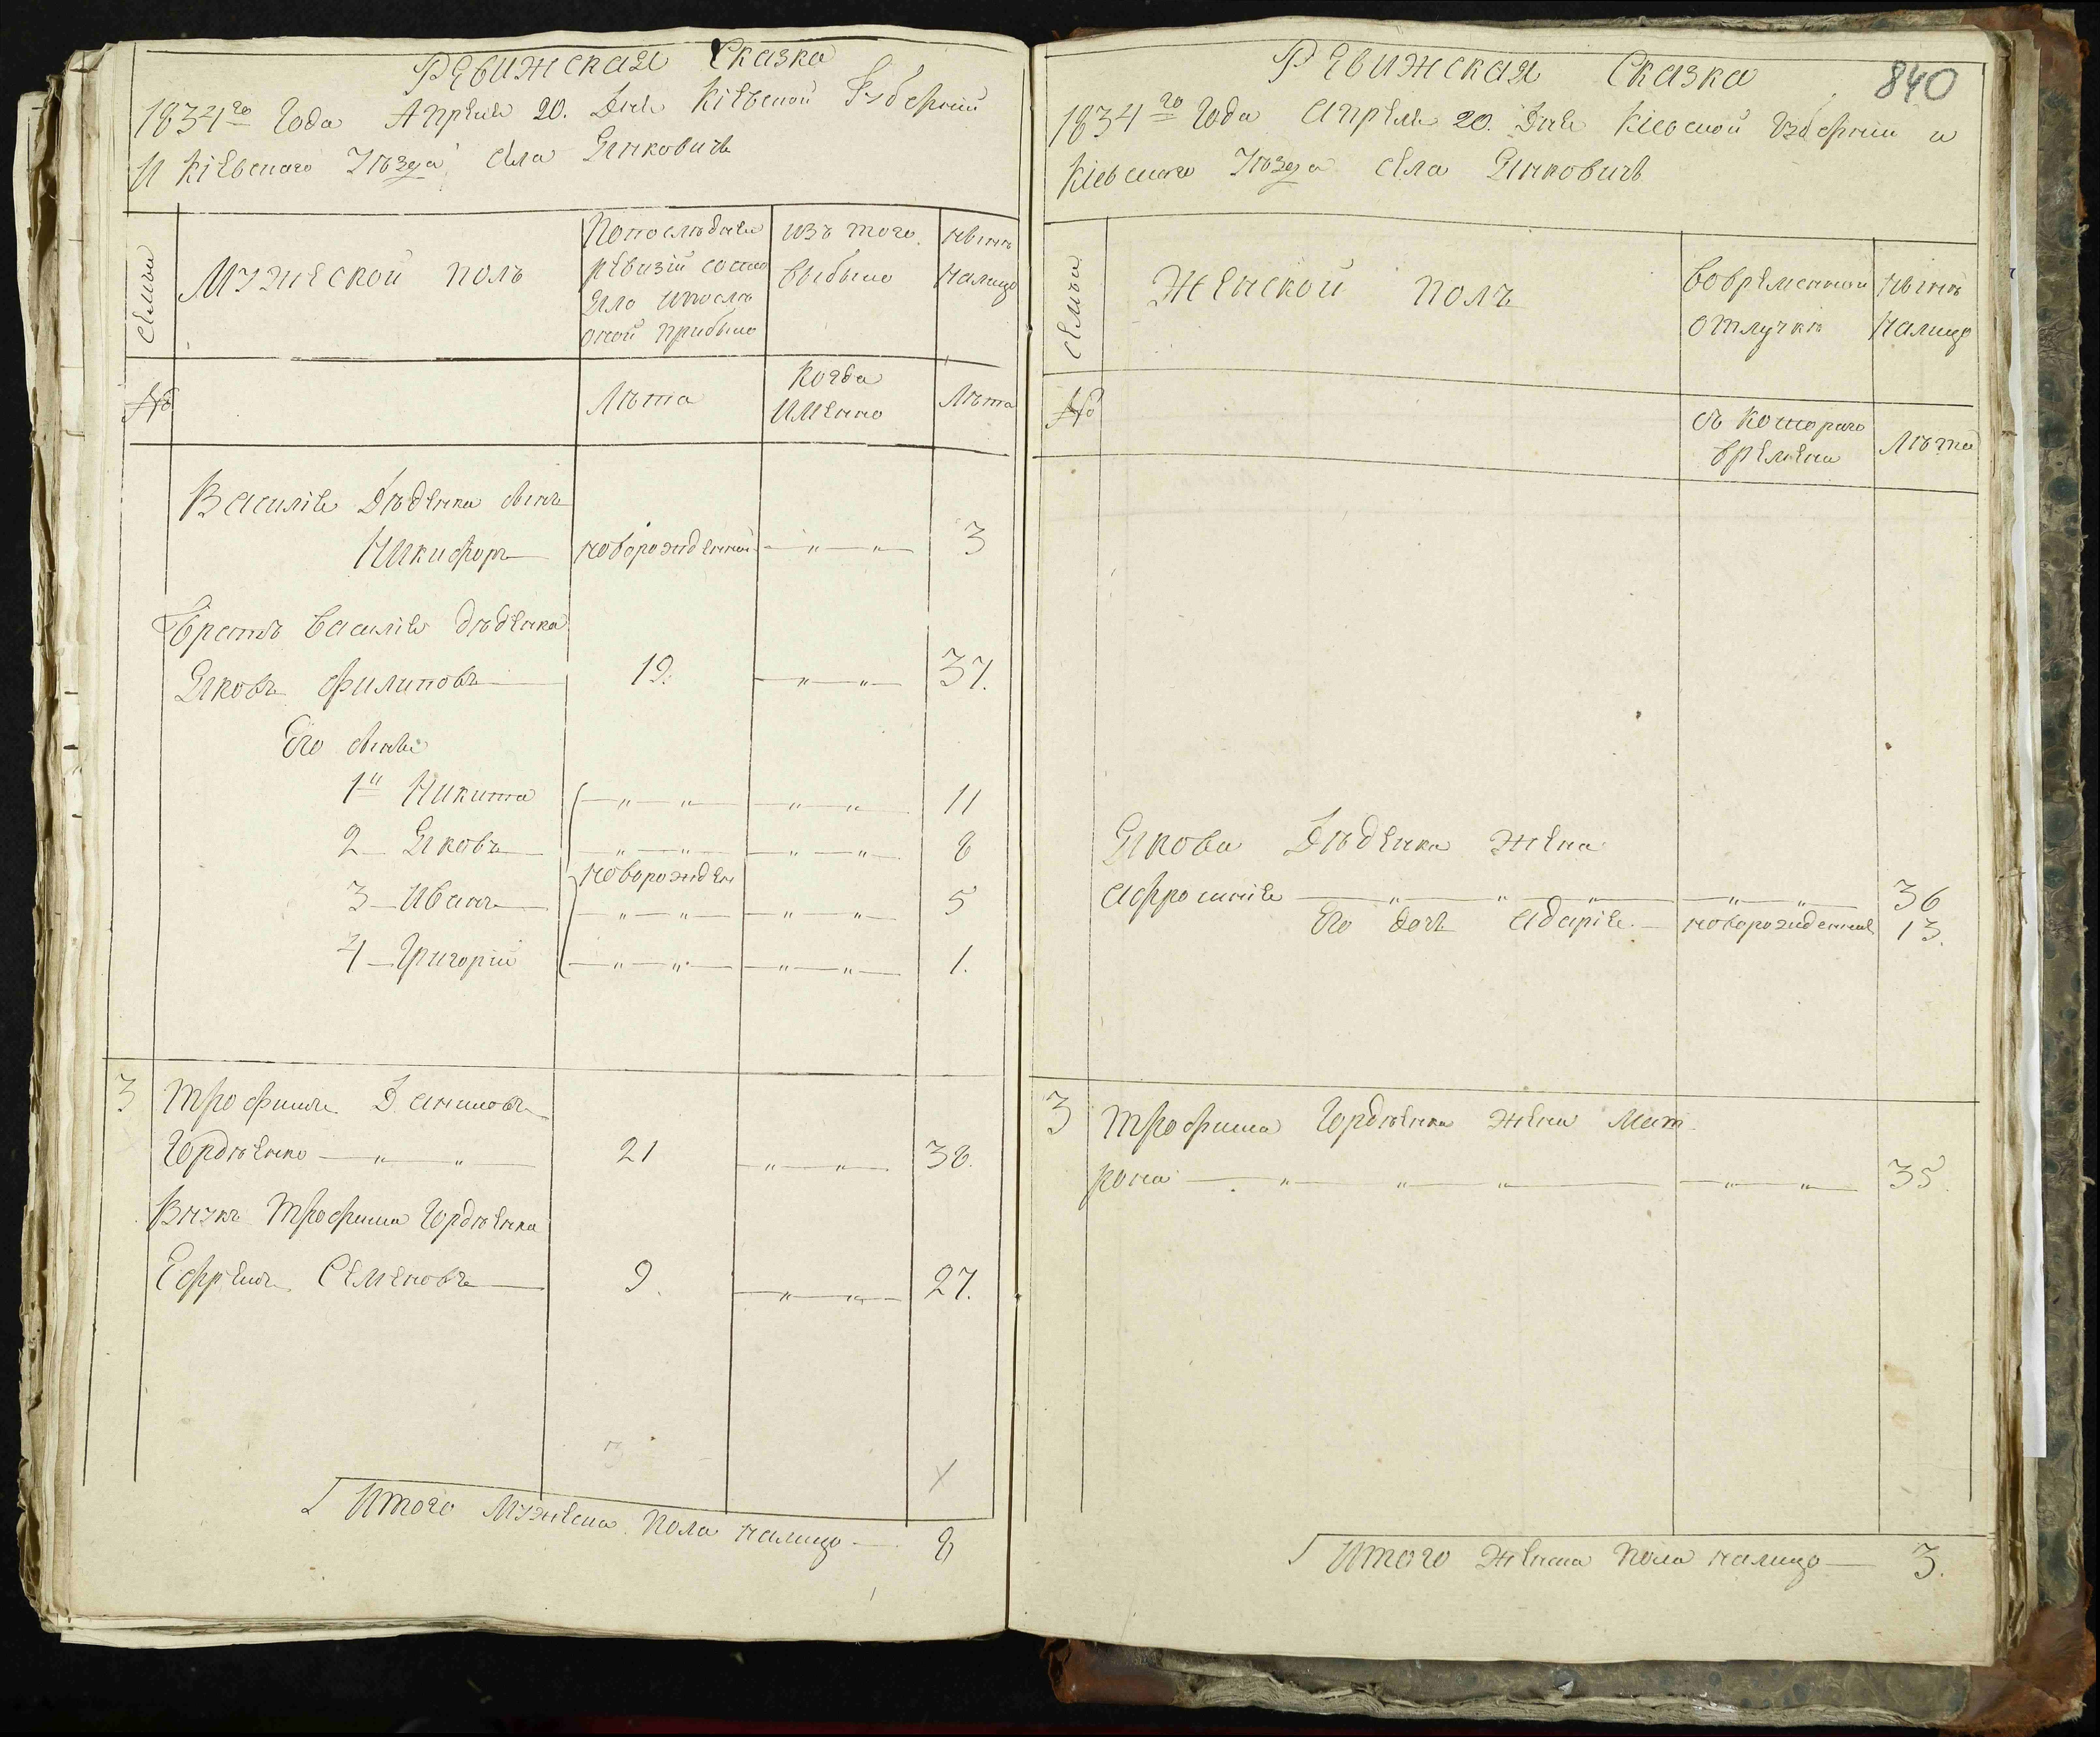 Ревижская Сказка
1834го Года Апреля 20. Дня Кіевской Губерніи
И Кіевскаго Уѣзда Села Янковичъ
Семьи
Мужеской полъ
Попоследнеи
ревизіи состо
яло ипосле
оной прибыло
изъ того
выбыло
нынѣ
налицо
№
Лѣта
Когда
Именно
Лѣта
Василія Дѣденка сынъ
Никифоръ новорожденной — " — " — 3
Братъ Василія дѣденка
Яковъ Филиповъ — 19. — " — " — 37.
Его сыны
1й Никита — " — " — — " — " — 11
2 — Яковъ — — " — " — — " — " — 8
новорожден
3 — Иванъ — — " — " — — " — " — 5
4 — Григорій — " — " — — " — " — 1.
3 Трофимъ Даниловъ
Гордѣенко — " — " — 21 — " — " — 38.
Внукъ Трофима Гордѣенка
Ефремъ Семеновъ — 9. — " — " — 27.
Итого Мужеска пола налицо — 8
840
Ревижская Сказка
1834го Года Апреля 20. Дня Кіевской Губерніи и
Кіевскаго Уѣзда Села Янковичъ
Семьи
Женской полъ
вовременной
отлучкѣ
нынѣ
налицо
№
съ котораго
времени
Лѣта
Якова Дѣденка жена
Афросинія — " — " — " — — " — " — 36
Его дочь Адарія — новорожденная 13.
3 Трофима Гордѣенка жена Мат-
рона — " — " — " — — " — " — 35.
Итого женска пола налицо — 3.